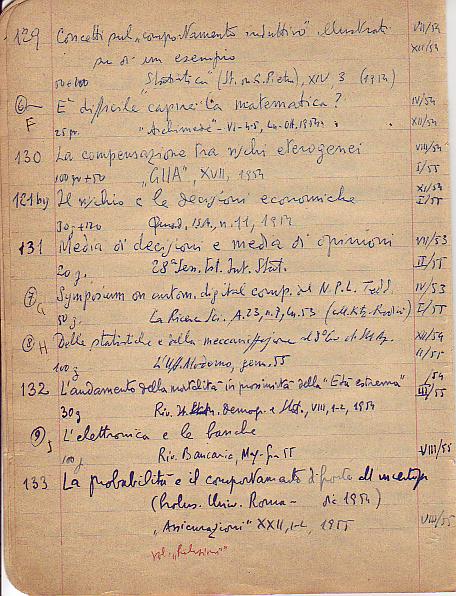 129 Concetti sul „comportamento induttivo" illustrati VII/54
su di un esempio XII/54
50+100 „Statistica" (St. on. G. Pietra), XIV, 3 (1954)
6 E' difficile capire la matematica? IV/54
F 25 gr. „Archimede" - VI-4-5, Lu-Ott. 1954 XII/54
130 La compensazione tra rischi eterogenei VIII/54
100 gr+50 „GIIA", XVII, 1954 I/55
121 by Il rischio e le decisioni economiche XI/54
30 g+120 n. 11, 1954 I/55
131 Media di decisioni e media di opinioni VII/53
20 g. 28ª Sess. Ist. Int. Stat. II/55
7 G Symposium on autom. digital comp. al N.P.L. Tedd. IV/53
50 g. La Ricerca Sci., A. 23, n. 7, Lu. 53 I/55
8 H Delle statistiche e della meccanizzazione XII/54
100 g L'Uff. Moderno, genn. 55 II/55
132 L'andamento della mortalità in prossimità della "Età estrema" /54
30 g Riv. It. Demogr. e Stat., VIII, 1-2, 1954 III/55
9 J L'elettronica e le banche
100 g Riv. Bancaria, Mag-Giu 55 VIII/55
133 La probabilità e il comportamento di fronte all'incertezza
(Prolus. Univ. Roma - dic 1954)
„Assicurazioni" XXII, 1-2, 1955 VIII/55